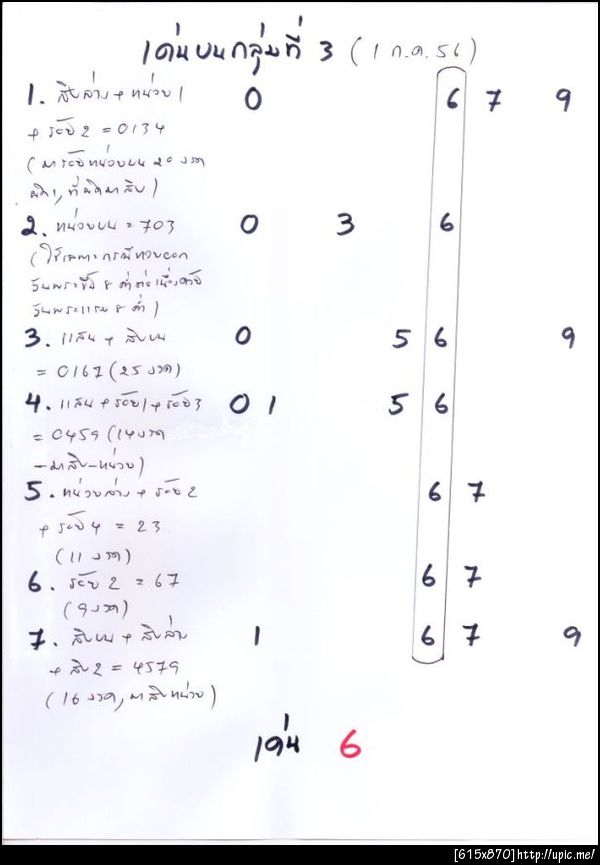 เด่นบนกลุ่มที่ 3 (1 ก.ค.56)
1. สิบล่าง + หน่วย1 0 6 7 9
+ ร้อย 2 = 0134
(มาร้อยหน่วยบน 20 งวด
ผิด1, ที่ผิดมาสิบ)
2. หน่วยบน = 703 0 3 6
(ใช้เฉพาะกรณีหวยออก
วันพระขึ้น 8 ค่ำต่อเนื่องกับ
วันพระแรม 8 ค่ำ)
3. แสน + สิบบน 0 5 6 9
= 0167 (25 งวด)
4. แสน + ร้อย1 + ร้อย3 0 1 5 6
= 0459 (14 งวด
-มาสิบ-หน่วย)
5. หน่วยล่าง + ร้อย 2 6 7
+ ร้อย 4 = 23
(11 งวด)
6. ร้อย 2 = 67 6 7
(9 งวด)
7. สิบบน + สิบล่าง 1 6 7 9
+ สิบ 2 = 4579
(16 งวด, มาสิบหน่วย)
เด่น 6
[615x870]http://upic.me/